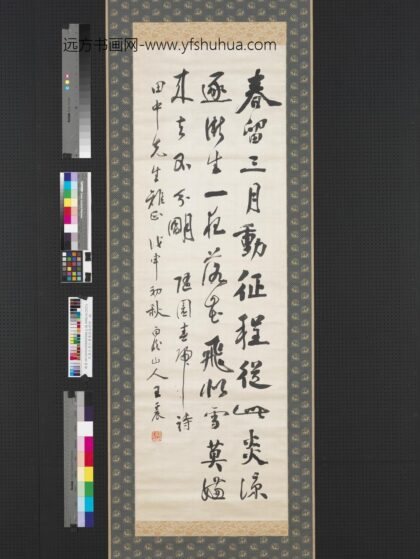 远方书画网-www.yfshuhua.com
春留三月動征程從此炎涼
逐漸生一夜落花飛似雪莫嫌
來去不分明 隨園春 詩
田中先生雅正 戊 初秋 白龍山人王震